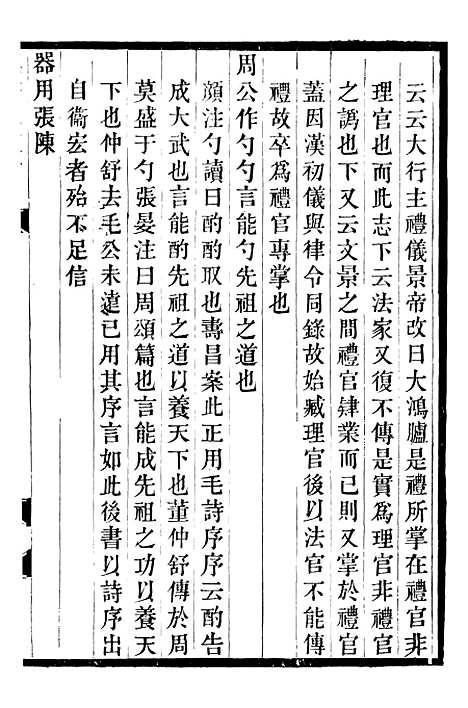 云云大行主禮儀景帝改曰大鴻臚是禮所掌在禮官非
理官也而此志下云法家又復不傳是實爲理官非禮官
之譌也下又云文景之間禮官肄業而已則又掌於禮官
蓋因漢初儀與律令同錄故始臧理官後以法官不能傳
禮故卒爲禮官專掌也
周公作勺勺言能勺先祖之道也
顏注勺讀曰酌酌取也壽昌案此正用毛詩序序云酌告
成大武也言能酌先祖之道以養天下也董仲舒傳於周
莫盛于勺張晏注曰周頌篇也言能成先祖之功以養天
下也仲舒去毛公未遠已用其序言如此後書以詩序出
自衞宏者殆不足信
器用張陳